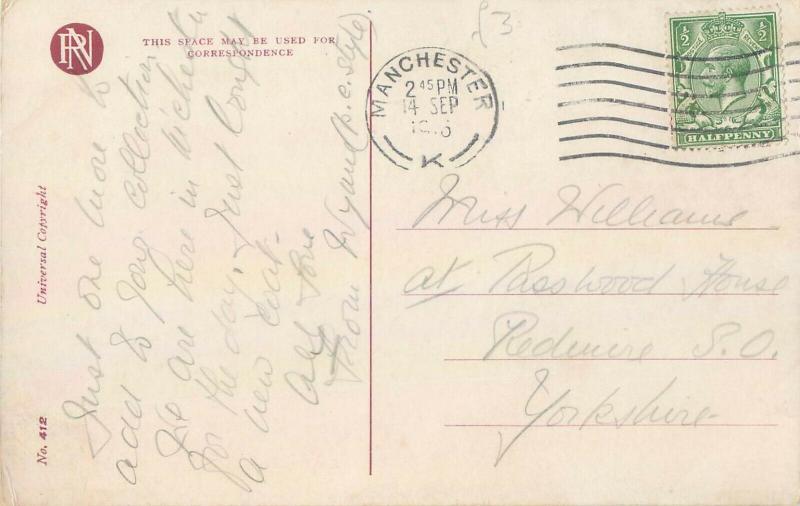 RN
THIS SPACE MAY BE USED FOR
CORRESPONDENCE
£3
MANCHESTER
2 45 PM
14 SEP
K
½ ½
HALFPENNY
Just one more to
add to your collection
We are here in
for the day, Just
a new coat.
All love
from
Miss Williams
at Passwood House
Redmire S.O.
Yorkshire
Universal Copyright
No. 412